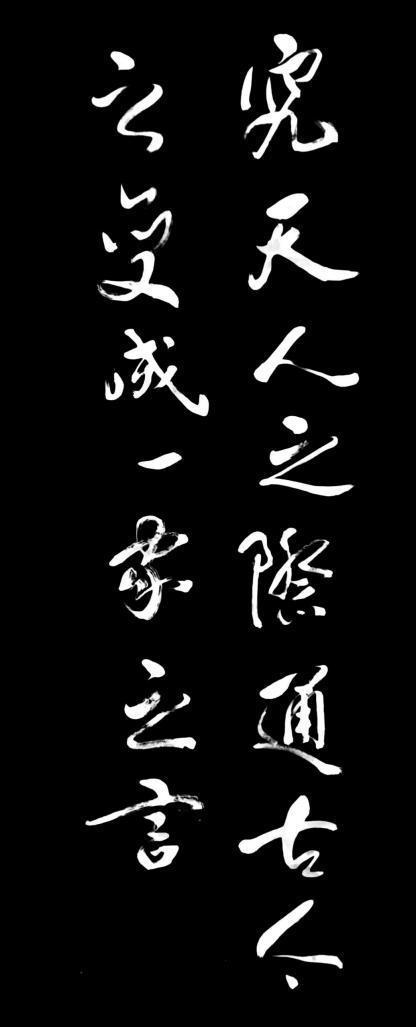 究天人之際通古今
之變成一家之言